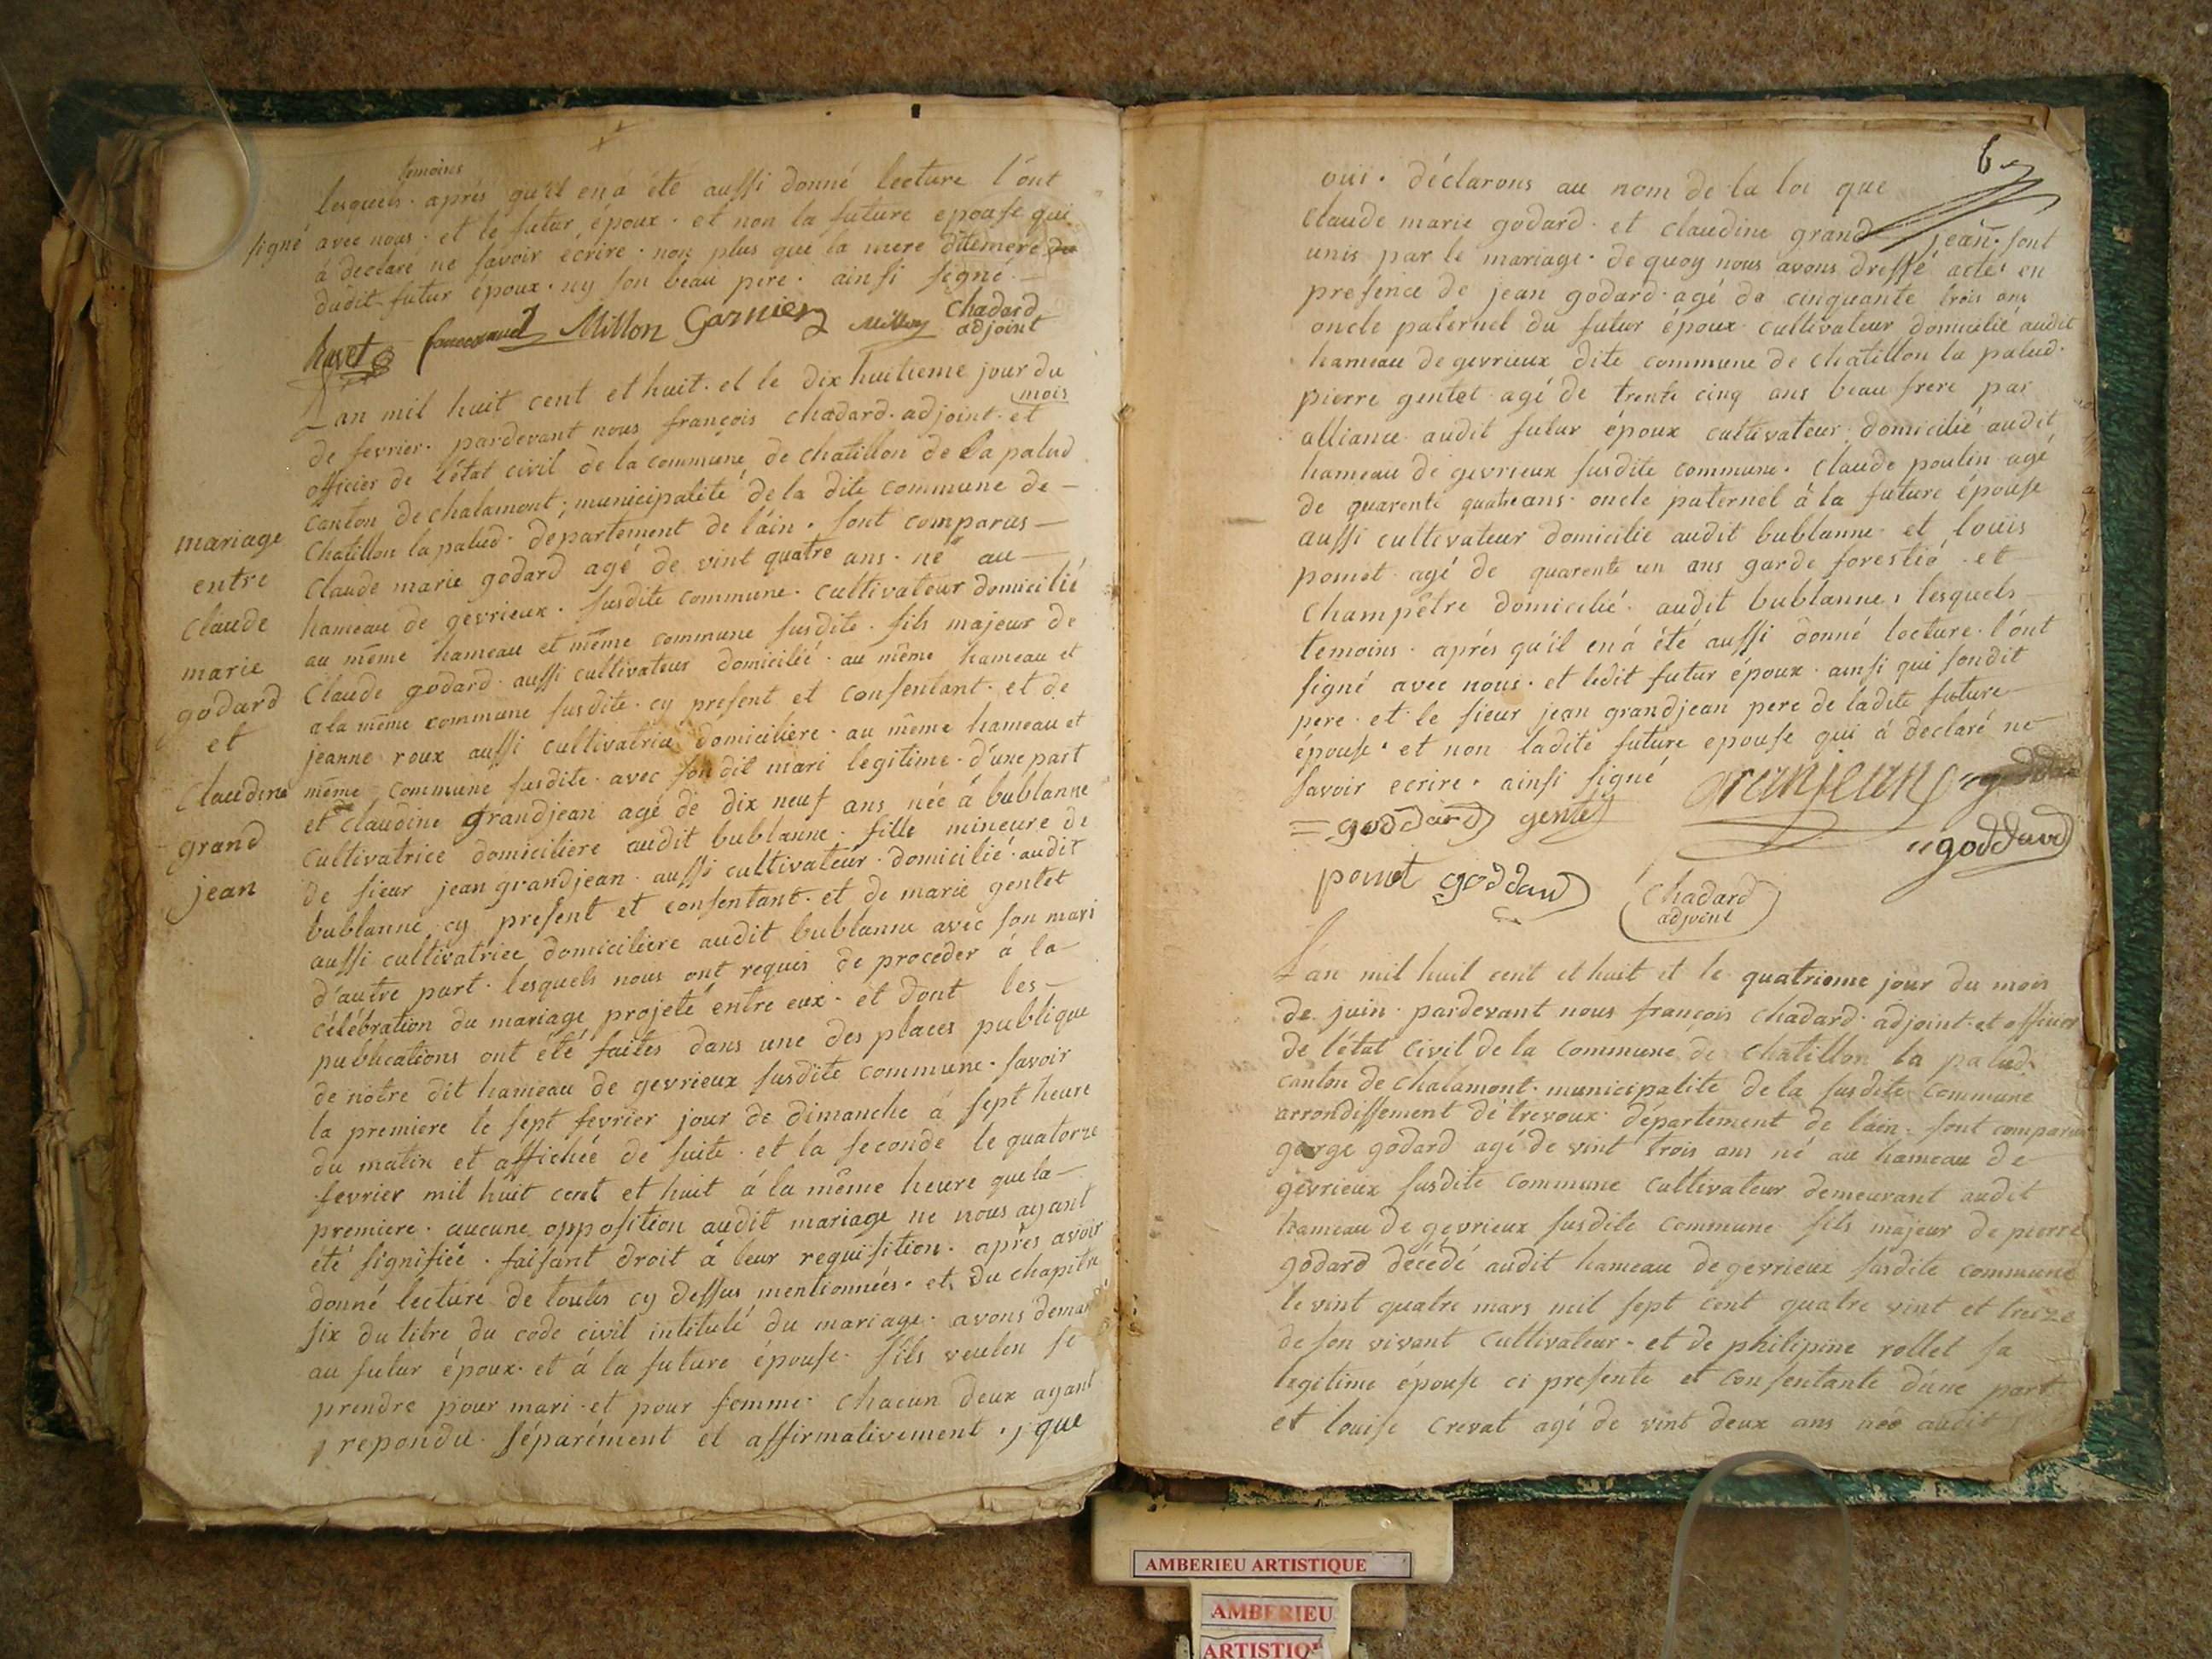 temoins
lesquels. aprés qu'il en á été aussi donné lecture l'ont
signé avec nous. et le futur époux. et non la future epouse qui
á declaré ne savoir ecrire. non plus que la mere ditemere
dudit futur époux. ny son beau pere. ainsi signé.
Millon Garnier Millon Chadard
adjoint
Lan mil huit cent et huit. et le dix huitieme jour du
mois
de fevrier. pardevant nous françois chadard. adjoint. et
officier de l'état civil de la commune de chatillon de la palud
canton de chalamont; municipalité de la dite commune de
chatillon la palud. département de láin. sont comparus
mariage
entre
claude
marie
godard
et
claudine
grand
jean
claude marie godard agé de vint quatre ans. né au
hameau de gevrieux. susdite commune. cultivateur domicilié
au même hameau et même commune susdite. fils majeur de
claude godard. aussi cultivateur domicilié. au même hameau et
a la même commune susdite. cy present et consentant. et de
jeanne roux aussi cultivatrice domiciliere. au même hameau et
même commune susdite. avec son dit mari legitime. d'une part
et claudine grandjean agé de dix neuf ans née á bublanne
cultivatrice domiciliere audit bublanne. fille mineure de
de sieur jean grandjean. aussi cultivateur. domicilié. audit
bublanne cy present et consentant. et de marie gentet
aussi cultivatrice domiciliere audit bublanne avec son mari
d'autre part. lesquels nous ont requis de proceder á la
célébration du mariage projeté entre eux. et dont les
publications ont été faites dans une des places publique
de nôtre dit hameau de gevrieux susdite commune. savoir
la premiere le sept fevrier jour de dimanche á sept heure
du matin et affichée de suite. et la seconde le quatorze
fevrier mil huit cent et huit á la même heure que la
premiere. aucune opposition audit mariage ne nous ayant
été signifiée. faisant droit á leur requisition. aprés avoir
donné lecture de toutes cy dessus mentionnées. et du chapitre
six du titre du code civil intitulé du mariage. avons deman
au futur époux. et á la future épouse. sils veulen se
prendre pour mari. et pour femme. chacun deux ayant
repondu. séparément et affirmativement. que
6
oui. déclarons au nom de la loi que
claude marie godard. et claudine grand jean. sont
unis par le mariage. de quoy nous avons dressé acte. en
presence de jean godard. agé de cinquante trois ans
oncle paternel du futur époux cultivateur domicilié audit
hameau de gevrieux dite commune de chatillon la palud.
pierre gentet agé de trente cinq ans beau frere par
alliance audit futur époux cultivateur domicilié audit
hameau de gevrieux susdite commune. claude poulin agé
de quarente quatre ans. oncle paternel á la future épouse
aussi cultivateur domicilié audit bublanne. et louis
pomet agé de quarente un ans garde forestié. et
champêtre domicilié. audit bublanne, lesquels
temoins. aprés qu'il en á été aussi donné lecture. l'ont
signé avec nous. et ledit futur époux. ainsi qui sondit
pere. et le sieur jean grandjean pere de ladite future
épouse. et non ladite future epouse qui á declaré ne
savoir ecrire. ainsi signé granjean
goddard gentet goddard
pomet goddard Chadard
adjoint
Lan mil huit cent et huit et le quatrieme jour du mois
de juin. pardevant nous françois chadard. adjoint. et officier
de l'état civil de la commune de chatillon la palud.
canton de chalamont. municipalité de la susdite commune
arrondissement de trevoux. département de láin. sont comparus
george godard agé de vint trois ans né au hameau de
gevrieux susdite commune cultivateur demeurant audit
hameau de gevrieux susdite commune fils majeur de pierre
godard décédé audit hameau de gevrieux susdite commune
le vint quatre mars mil sept cent quatre vint et treize
de son vivant cultivateur. et de philipine rollet sa
legitime épouse ci presente et consentante dune part
et louise crevat agé de vint deux ans neé audit
AMBERIEU ARTISTIQUE
AMBERIEU
ARTISTIQU